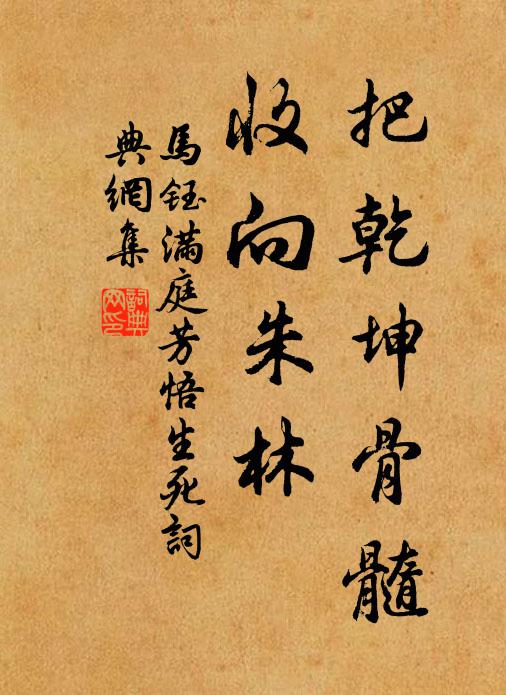 把乾坤骨髓
收向朱林
馬鈺滿庭芳悟生死詞
典網集
詞典網印